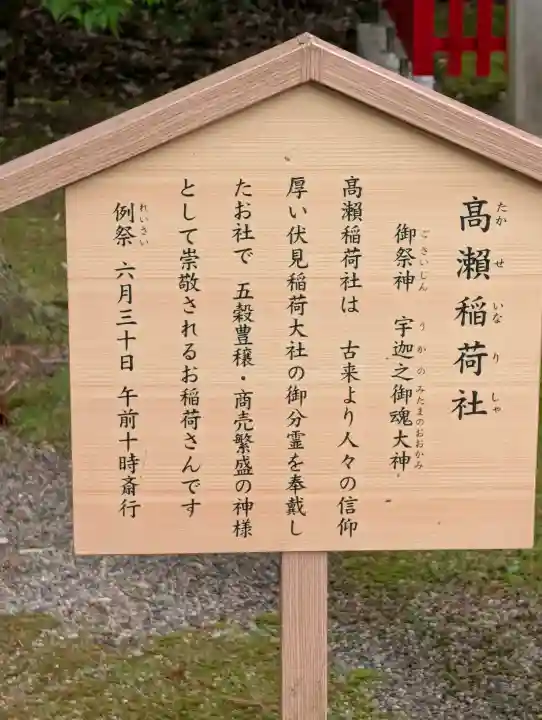 髙瀨稲荷社
たかせいなりしゃ
御祭神 宇迦之御魂大神
ごさいじん うかのみたまのおおかみ
髙瀨稲荷社は 古来より人々の信仰
厚い伏見稲荷大社の御分霊を奉戴し
たお社で 五穀豊穣・商売繁盛の神様
として崇敬されるお稲荷さんです
例祭 六月三十日 午前十時斎行
れいさい